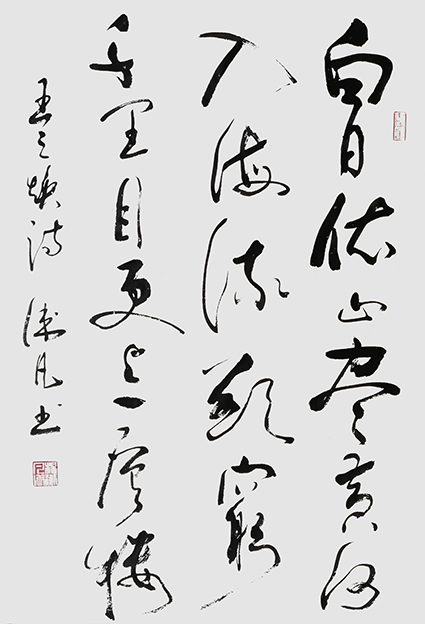 白日依山尽黄河
入海流欲窮
千里目更上一层楼
王之涣诗 凡书